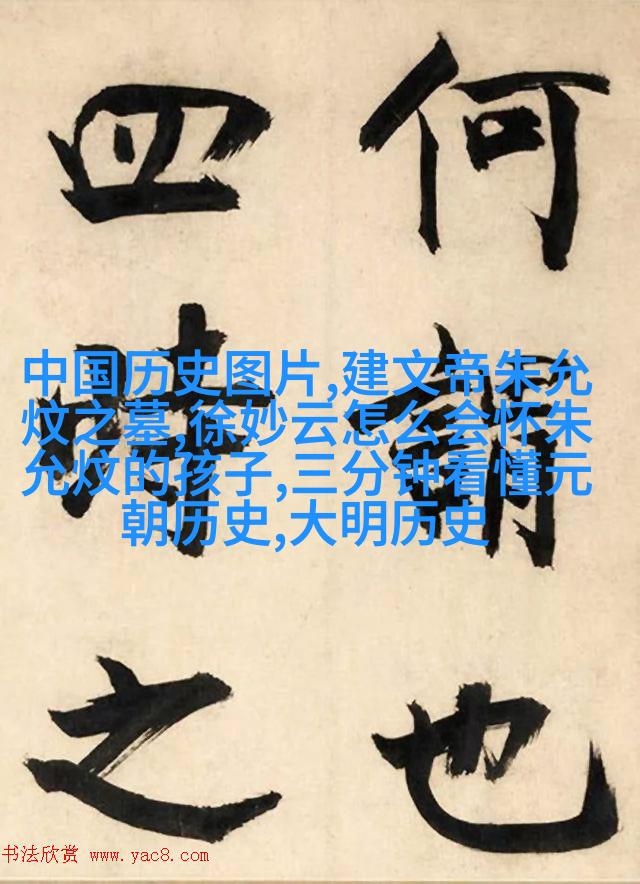 何謂也
四時之
中国历史图片,建文帝朱允
炆之墓,徐妙云怎么会怀朱
允炆的孩子,三分钟看懂元
朝历史,大明历史
书法欣赏 www.yac8.com